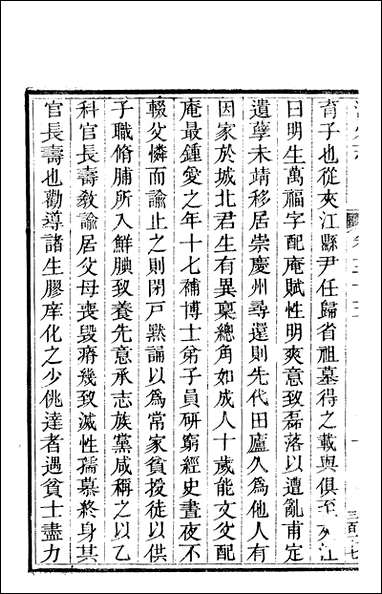 育子也從夾江縣尹任歸省祖墓得之載與俱至夾江
日明生萬福字配庵賦性明爽意致磊落以遭亂甫定
遺孽未靖移居崇慶州尋還則先代田廬久為他人有
因家於城北君生有異稟總角如成人十歲能文父配
庵最鍾愛之年十七補博士弟子員研窮經史晝夜不
輟父憐而諭止之則閉戸默誦以為常家貧授徒以供
子職脩脯所入鮮腆致養先意承志族黨咸稱之以乙
科官長壽教諭居父母喪毀瘠幾致滅性孺慕終身其
官長壽也勸導諸生膠庠化之少佻達者遇貧士盡力